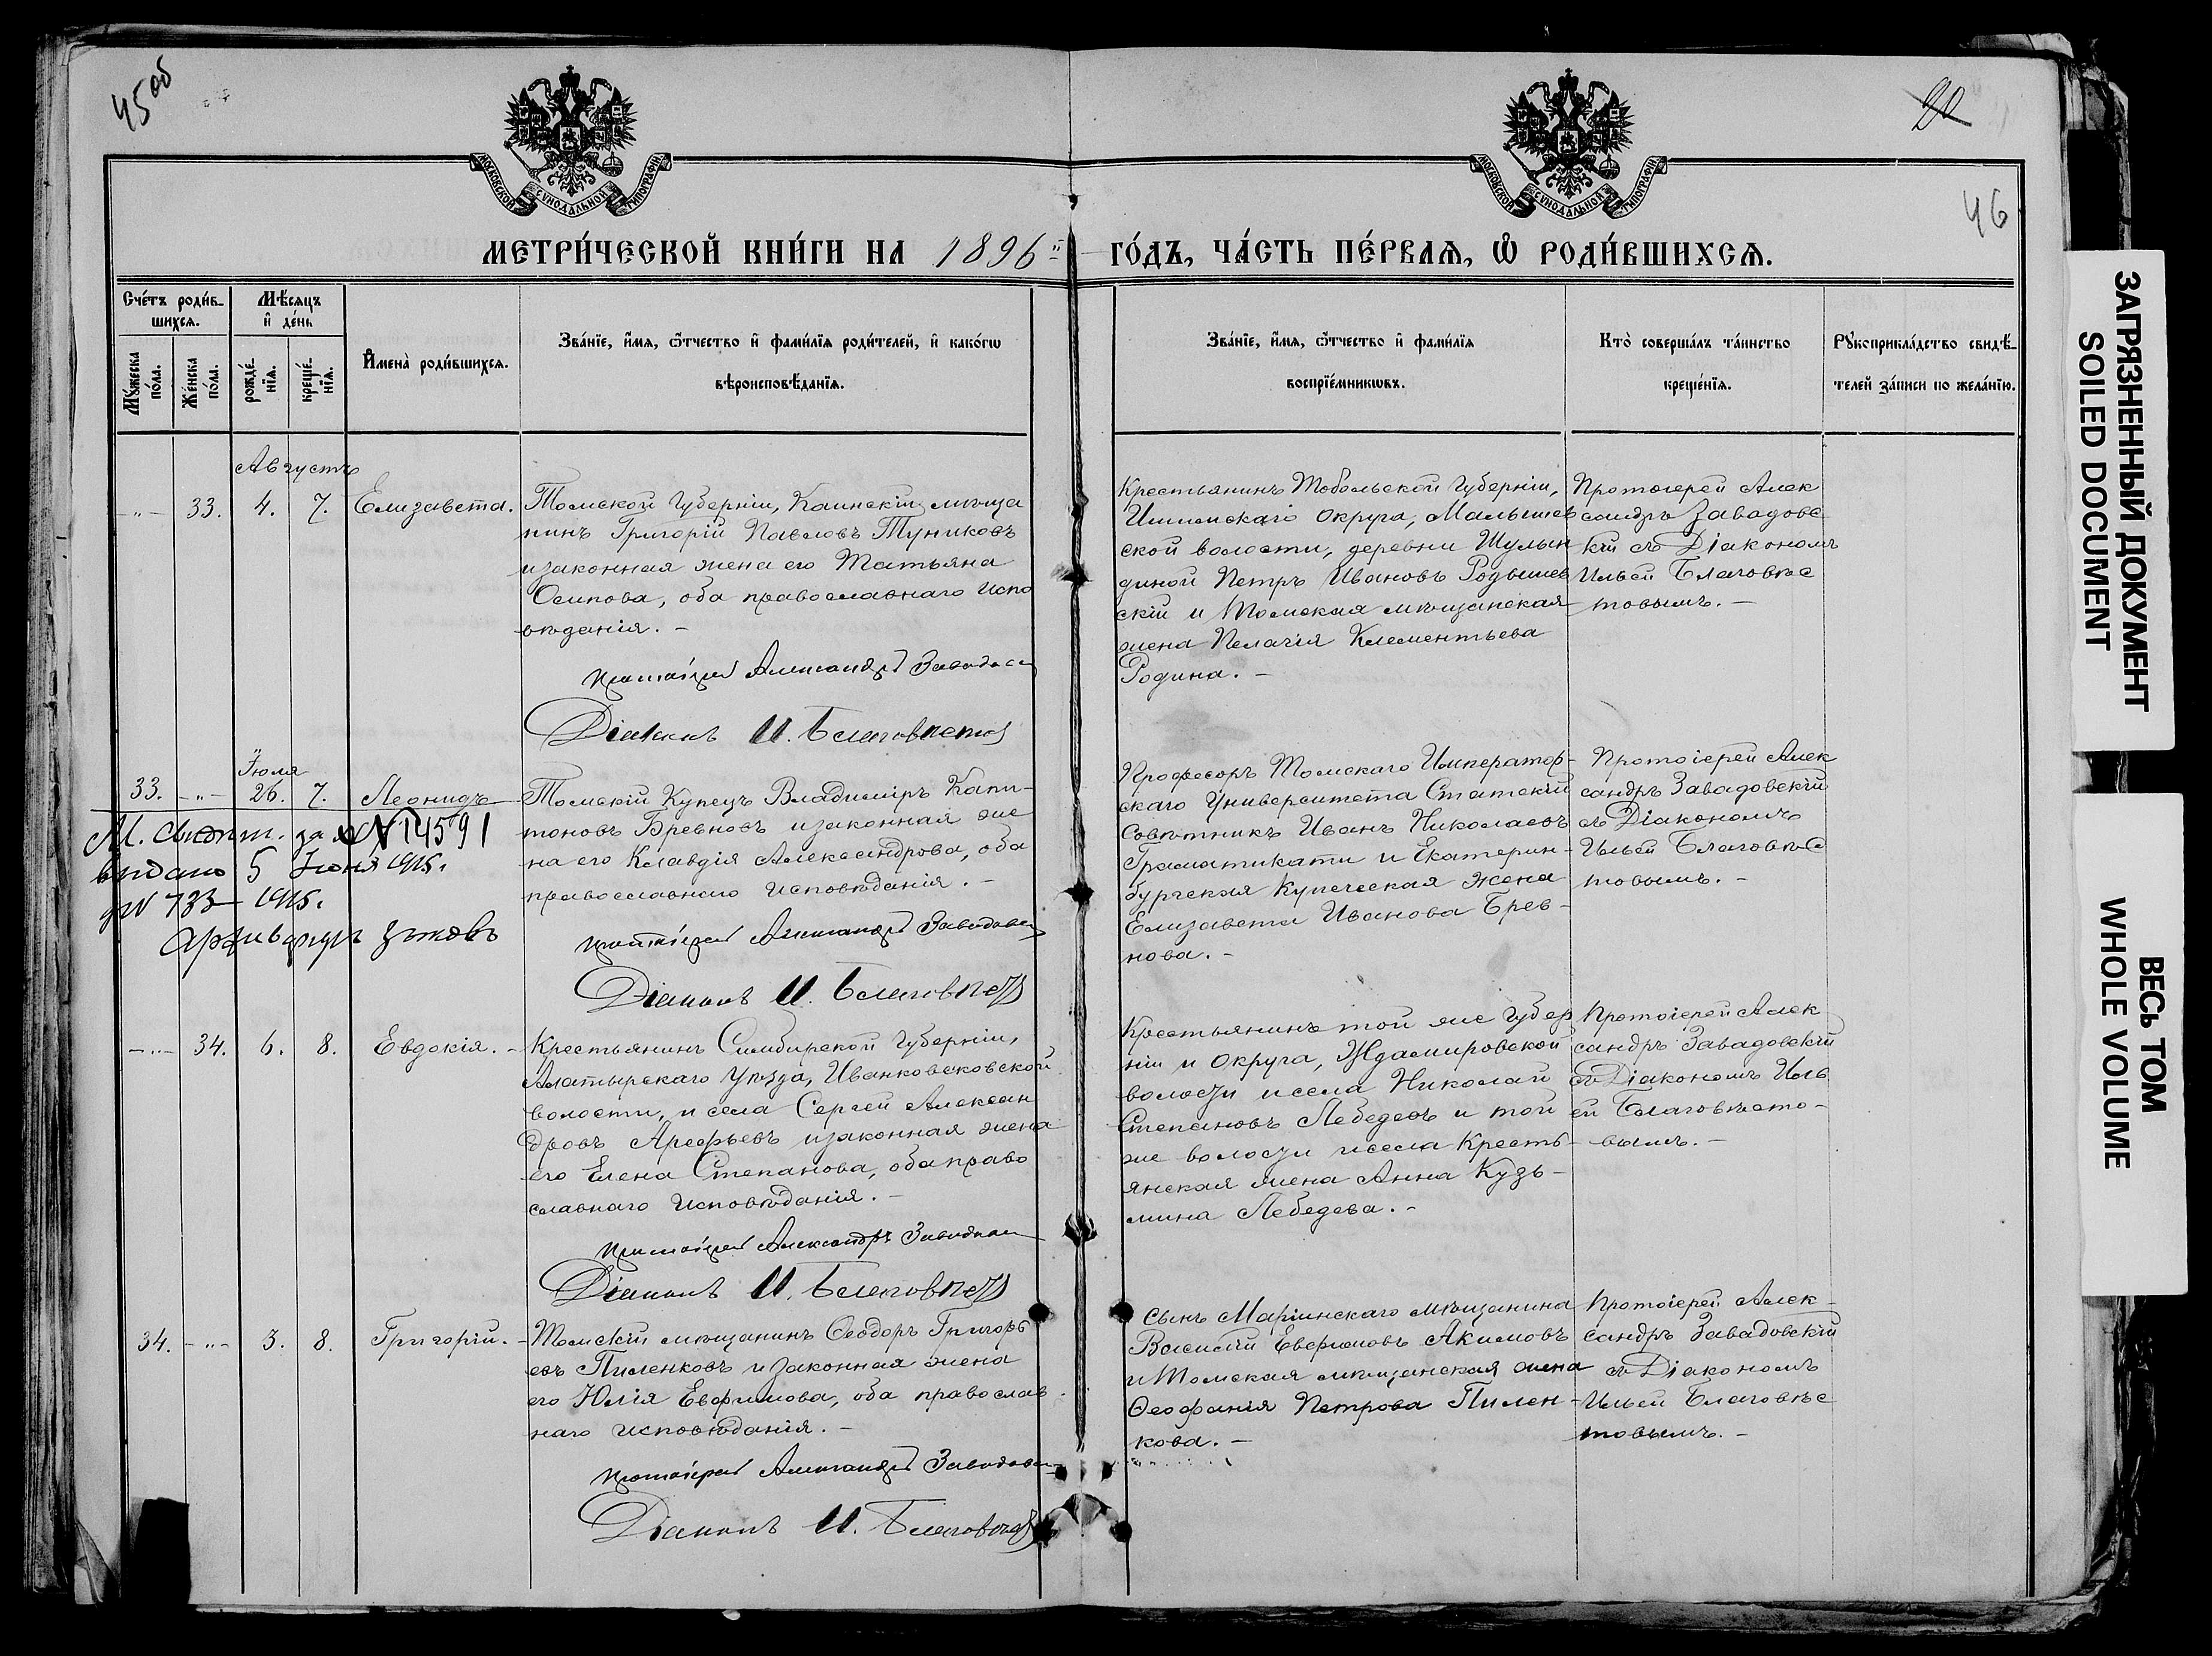 45 об
20
46
МОСКОВСКОЙ СѴНОДАЛЬНОЙ ТИПОГРАФІИ
МОСКОВСКОЙ СѴНОДАЛЬНОЙ ТИПОГРАФІИ
МЕТРИ́ЧЕСКОЙ КНИ́ГИ НА 1896 й ГО́ДЪ, ЧА́СТЬ ПЕ́РВАѦ, Ѿ РОДИ́ВШИХСѦ.
Сче́тъ роди́в-
шихсѧ.
Мѣ́сѧцъ
и҆ де́нь
Мꙋ́жеска
по́ла.
Же́нска
по́ла.
рожде́-
нїѧ.
креще́-
нїѧ.
И҆мена̀ роди́вшихсѧ.
Зва́нїе, и҆́мѧ, ѻ҆́тчество и҆ фами́лїѧ роди́телей, и҆ како́гѡ
вѣроисповѣ́данїѧ.
Зва́нїе, и҆́мѧ, ѻ҆́тчество и҆ фами́лїѧ
воспрїе́мникѡвъ.
Кто̀ соверша́лъ та́инство
креще́нїѧ.
Рꙋкоприкла́дство свидѣ́-
телей за́писи по жела́нїю.
Августъ
-"- 33. 4. 7. Елизавета.
Томской Губерніи, Каинскій мѣща
нинъ Григорій Павловъ Туниковъ
и законная жена его Татьяна
Осипова, оба православнаго испо
вѣданія. -
Протоіерей Александръ Завадовс
Діаконъ И. Благовѣстов
Крестьянинъ Тобольской Губерніи,
Ишимскаго округа, Малышев
ской волости, деревни Шулын
диной Петръ Ивановъ Родышев
скій и Томская мѣщанская
жена Пелагія Клементьева
Родина. -
Протоіерей Алек
сандръ Завадовс
кій съ Діакономъ
Ильей Благовѣс
товымъ. -
Іюля
33. -"- 26. 7. Леонидъ
Томскій Купецъ Владиміръ Капи-
тоновъ Бревновъ и законная же
на его Клавдія Александрова, оба
православнаго исповѣданія. -
Протоіерей Александръ Завадовс
Діаконъ И. Благовѣст
М. свидѣт. за № 14591
видано 5 Іюня 1915.
733 - 1915.
Професоръ Томскаго Император-
скаго Университета Статскій
Совѣтникъ Иванъ Николаевъ
Граматикати и Екатерин-
бургская Купеческая жена
Елизавета Иванова Брев-
нова. -
Протоіерей Алек
сандръ Завадовскій
съ Діакономъ
Ильей Благовѣс
товымъ. -
-"- 34. 6. 8. Евдокія. -
Крестьянинъ Симбирской Губерніи,
Алатырскаго уѣзда, Иваньковсковской
волости, и села Сергей Алексан
дровъ Арефьевъ и законная жена
его Елена Степанова, оба право
славнаго исповѣданія. -
Протоіерей Александръ Завадовс
Діаконъ И. Благовѣст
Крестьянинъ той же Губер
ніи и округа, Ждамировской
волости и села Николай
Степановъ Лебедевъ и той
же волости и села Кресть-
янская жена Анна Кузь-
мина Лебедева. -
Протоіерей Алек
сандръ Завадовскій
съ Діакономъ Иль
ей Благовѣсто-
вымъ. -
34. -"- 3. 8. Григорій. -
Томскій мѣщанинъ Ѳеодоръ Григорь
евъ Пиленковъ и законная жена
его Юлія Евфимова, оба православ
наго исповѣданія. -
Протоіерей Александръ Завадовс
Діаконъ И. Благовѣст
Сынъ Маріинскаго мѣщанина
Василій Евфимовъ Акимовъ
и Томская мѣщанская жена
Ѳеофанія Петрова Пилен-
кова. -
Протоіерей Алек-
сандръ Завадовскій
съ Діакономъ
Ильей Благовѣс
товымъ. -
ЗАГРЯЗНЕННЫЙ ДОКУМЕНТ
SOILED DOCUMENT
ВЕСЬ ТОМ
WHOLE VOLUME